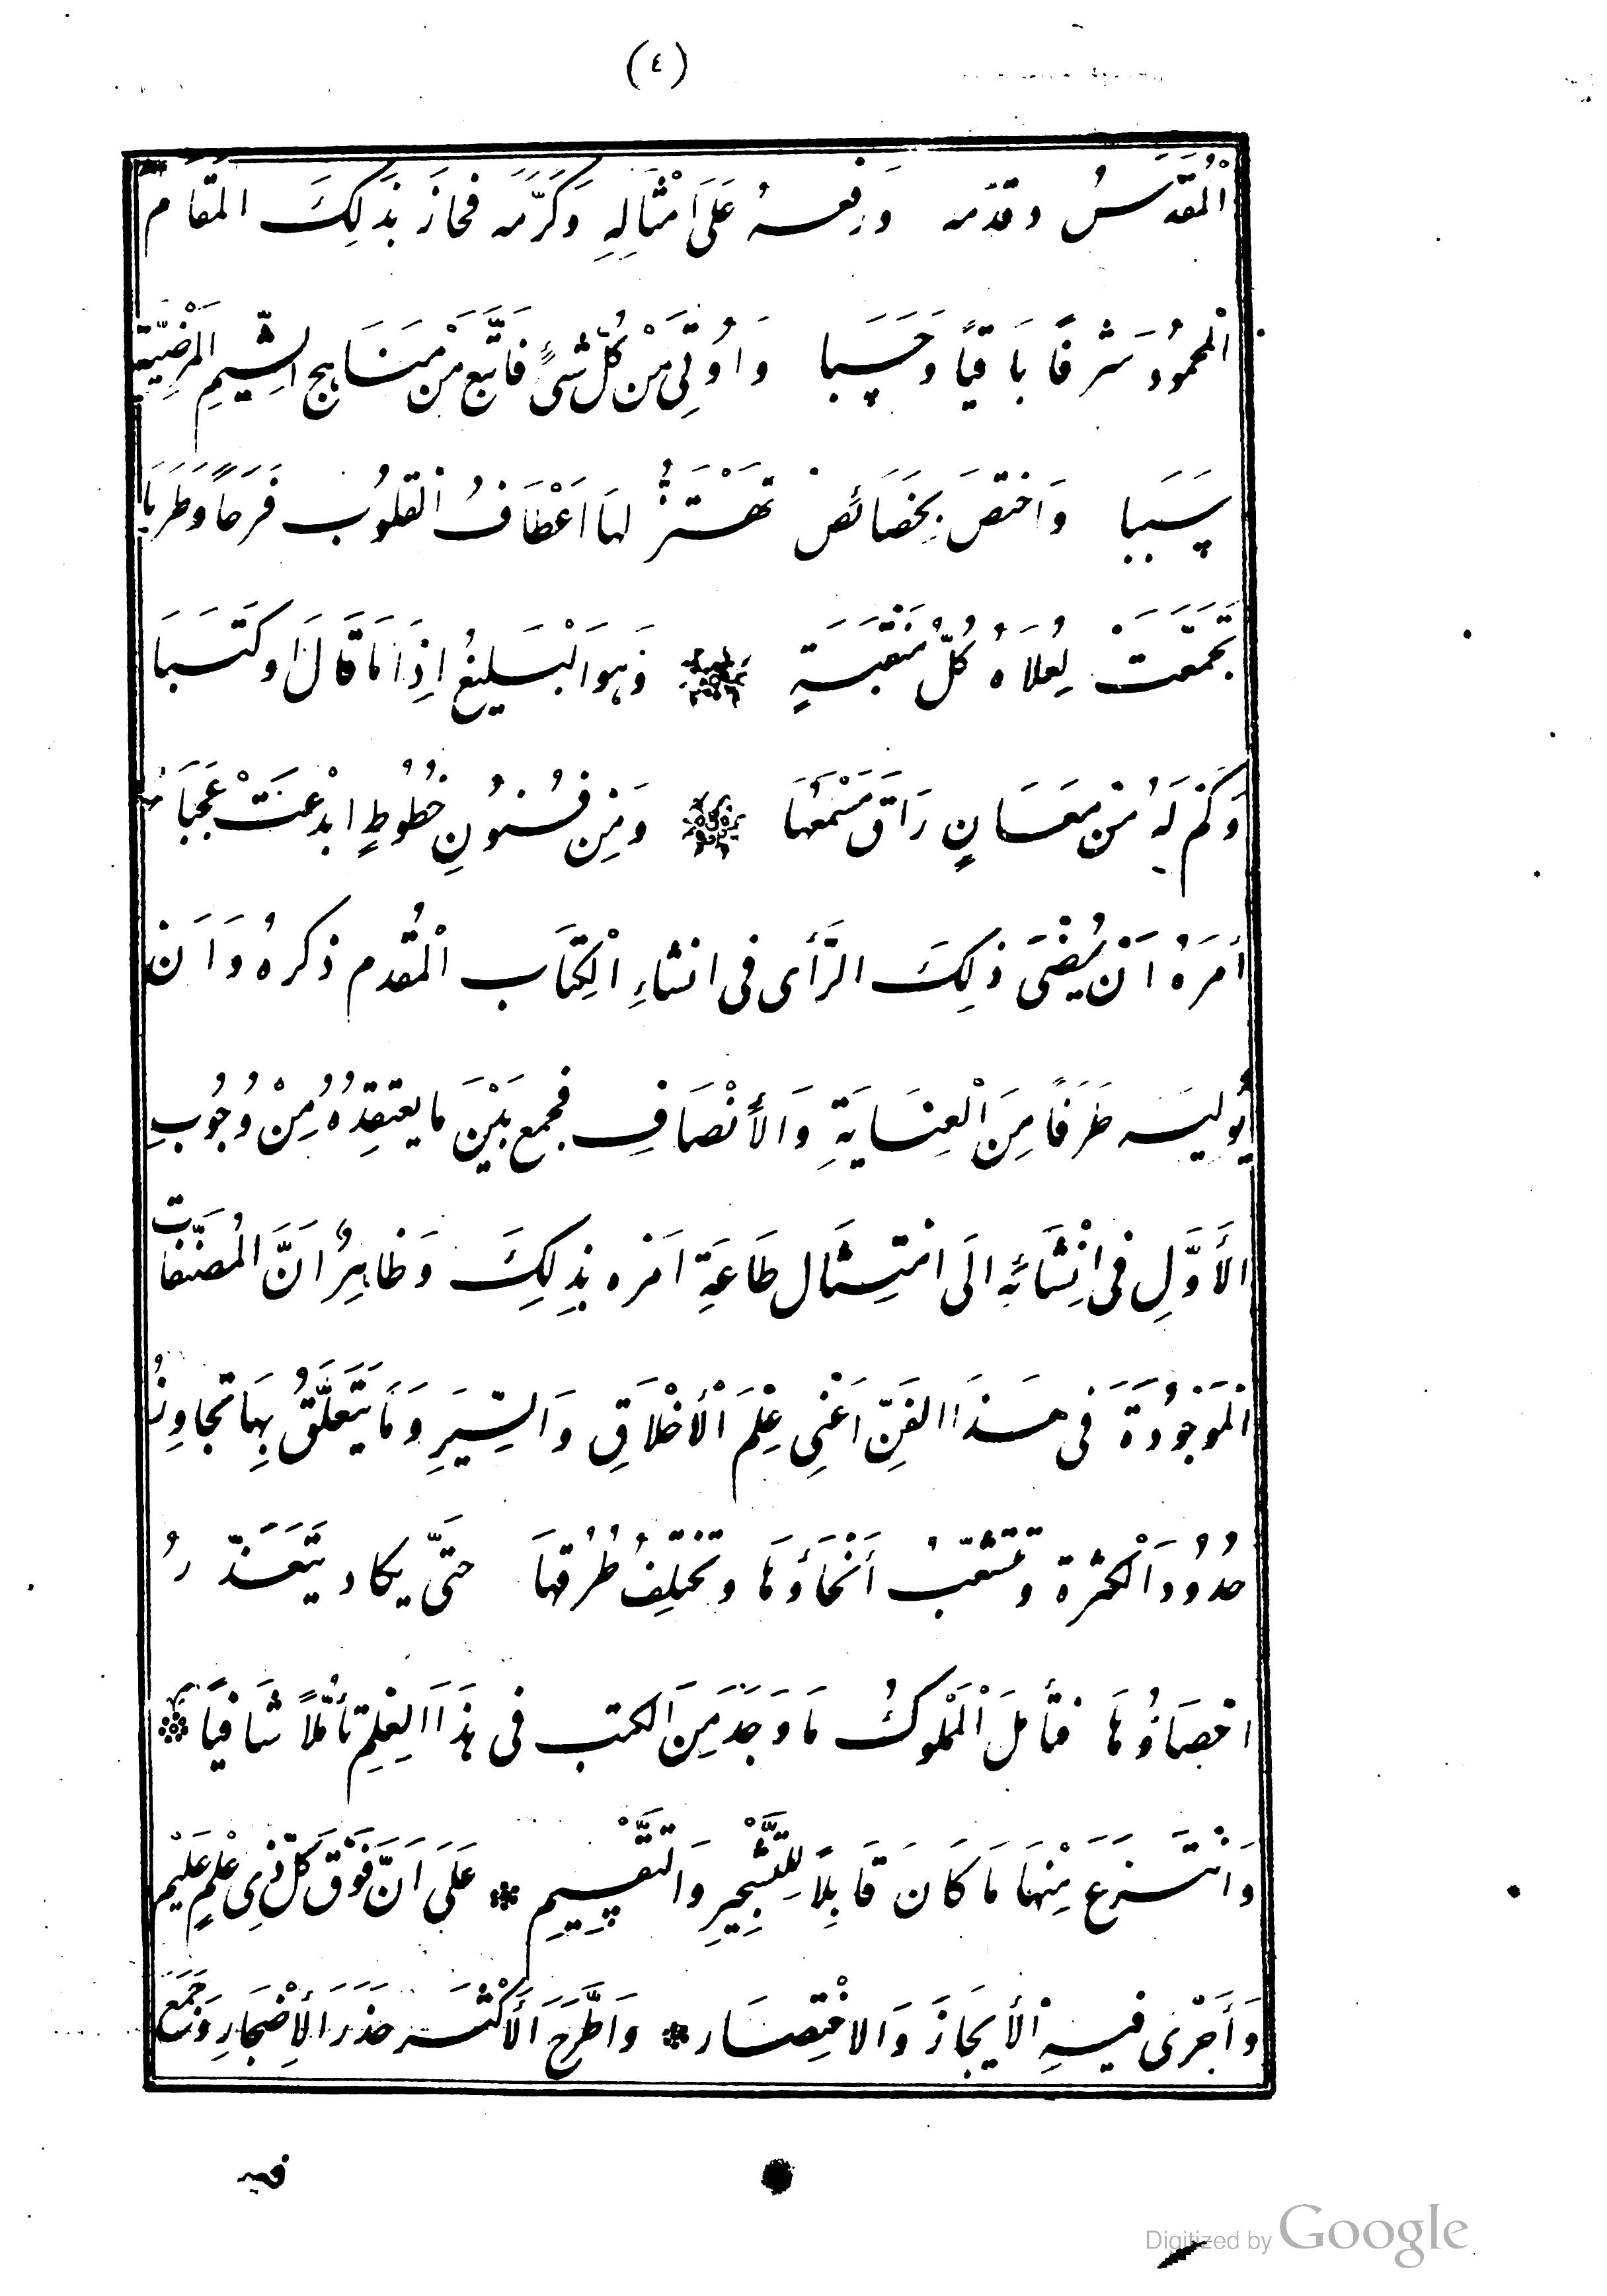 (٤)
اْلمُقَدَّسُ وقدَّمه وَرفعهُ عَلَى اَمْثَالِهِ وَكَرَّمَه فحازَ بذَلِكَ المَقَام
اْلمحمُودَ شرفًا بَاقيًا وَحَسَبا وَاُوتِىَ مَنْ كُلّ شىءٍ فَاتَّبعَ مَنْ مَنَاهِج الشِيَمِ المَرْضِيَّةِ
سَببا وَاختصَ بِخَصَائِصْ تهْتزُّ لهَا اَعْطَافُ القلُوُب فَرَحاً وَطَرَبَا
تجَمَّعَتْ لِعُلاَهُ كُلّ مَنقبَةٍ وَهوَ البَليغُ اِذَا مَا قَالَ اوكتَسبَا
وَكمْ لَهُ مْن مَعَانٍ رَاقَ مَسْمَعُهَا وَمِن فنُونِ خُطُوطٍ ابْدعَتْ عَجَبَا
أمَرَهُ اَنْ يُمْضَىَ ذلِكَ الرَّأى فى انشاءِ اْلكِتَاب اْلمُقدم ذكرهُ وَاَنْ
يُوليَه طَرَفًا مِنَ اْلعِنَايَةِ وَالأنْصَافِ فجمع بَيْنَ ما يعتقِدُهُ مِنْ وُجُوبِ
الأَوَّلِ فى اِنْشَائِه الَى امْتِثَال طَاعَةِ اَمْره بِذلِكَ وَظاهِرٌ اَنَّ المُصنَّفات
اْلمَوْجُودَةَ فى هَذَا الفَنِّ اَعْنِى عِلْمَ اْلأَخْلاَقِ وَالسِّيَرِ وَمَا يَتَعَلَّقُ بِهَا تجَاوِزُ
حُدُودَ اْلكثرة وَتَتَشعَّبُ أَنْحَاؤهَا وتَخْتلِفُ طُرُقهَا حَتَّى يكاد يَتَعَذّرُ
احْصَاؤُهَا فتأملَ اْلَمْلوكُ مَا وَجَدَ مَنَ الكتب فى هذَا العِلمِ تأمُّلاً شَافيًا
وَانْتزعَ مِنْهَا مَا كَانَ قَابِلاً لِلتَّشْجِيرِ وَالتَّقْسِيِم عَلَى اَنَّ فَوْقَ كَلّ ذِى عْلمٍ عَلَيْم
وَأَجْرْى فيهِ اْلأيَجازَ وَالاخْتِصَار وَاَطَّرَحَ اَلأَكْثَر حَذَرَ الأِضْجَارِ وَجَمَعَ
فيه
Digitized by Google